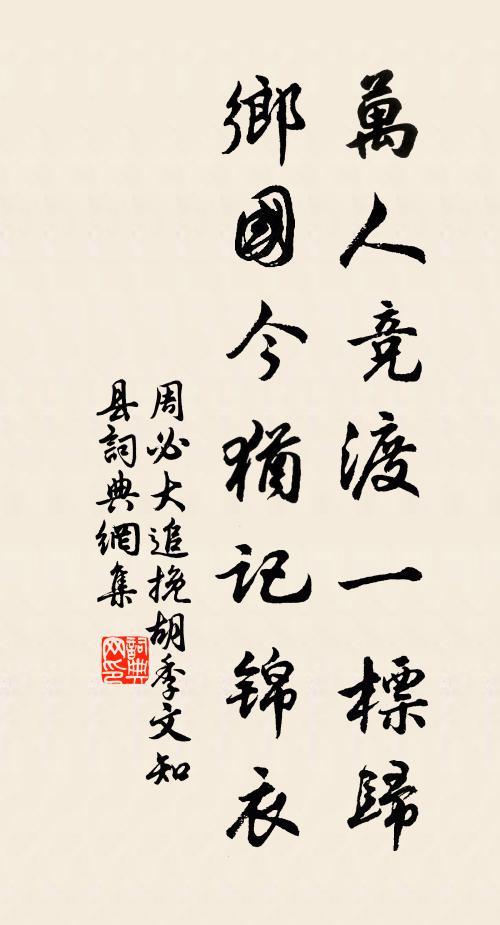 萬人竞渡一標歸
鄉國今猶记錦衣
周必大追挽胡季文知
县詞典網集
詞典
网印